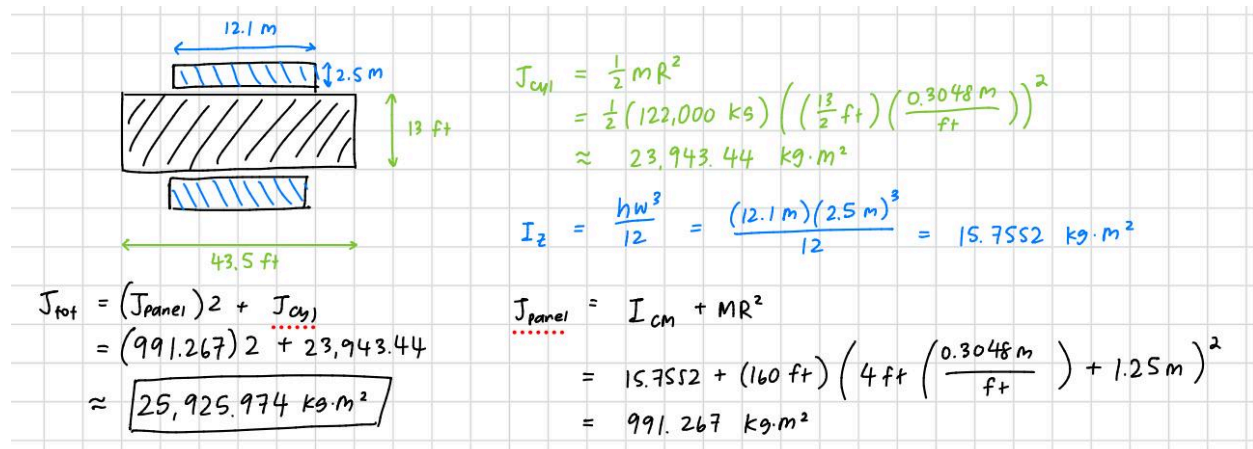 12.1 m
2.5 m
13 ft
43.5 ft
J_cyl = 1/2 mR²
= 1/2 (122,000 kg) ((13/2 ft) (0.3048 m / ft))²
≈ 23,943.44 kg·m²
I_z = hw³/12 = (12.1 m)(2.5 m)³/12 = 15.7552 kg·m²
J_tot = (J_panel)2 + J_cyl
= (991.267)2 + 23,943.44
≈ 25,925.974 kg·m²
J_panel = I_cm + MR²
= 15.7552 + (160 ft) (4 ft (0.3048 m / ft) + 1.25 m)²
= 991.267 kg·m²